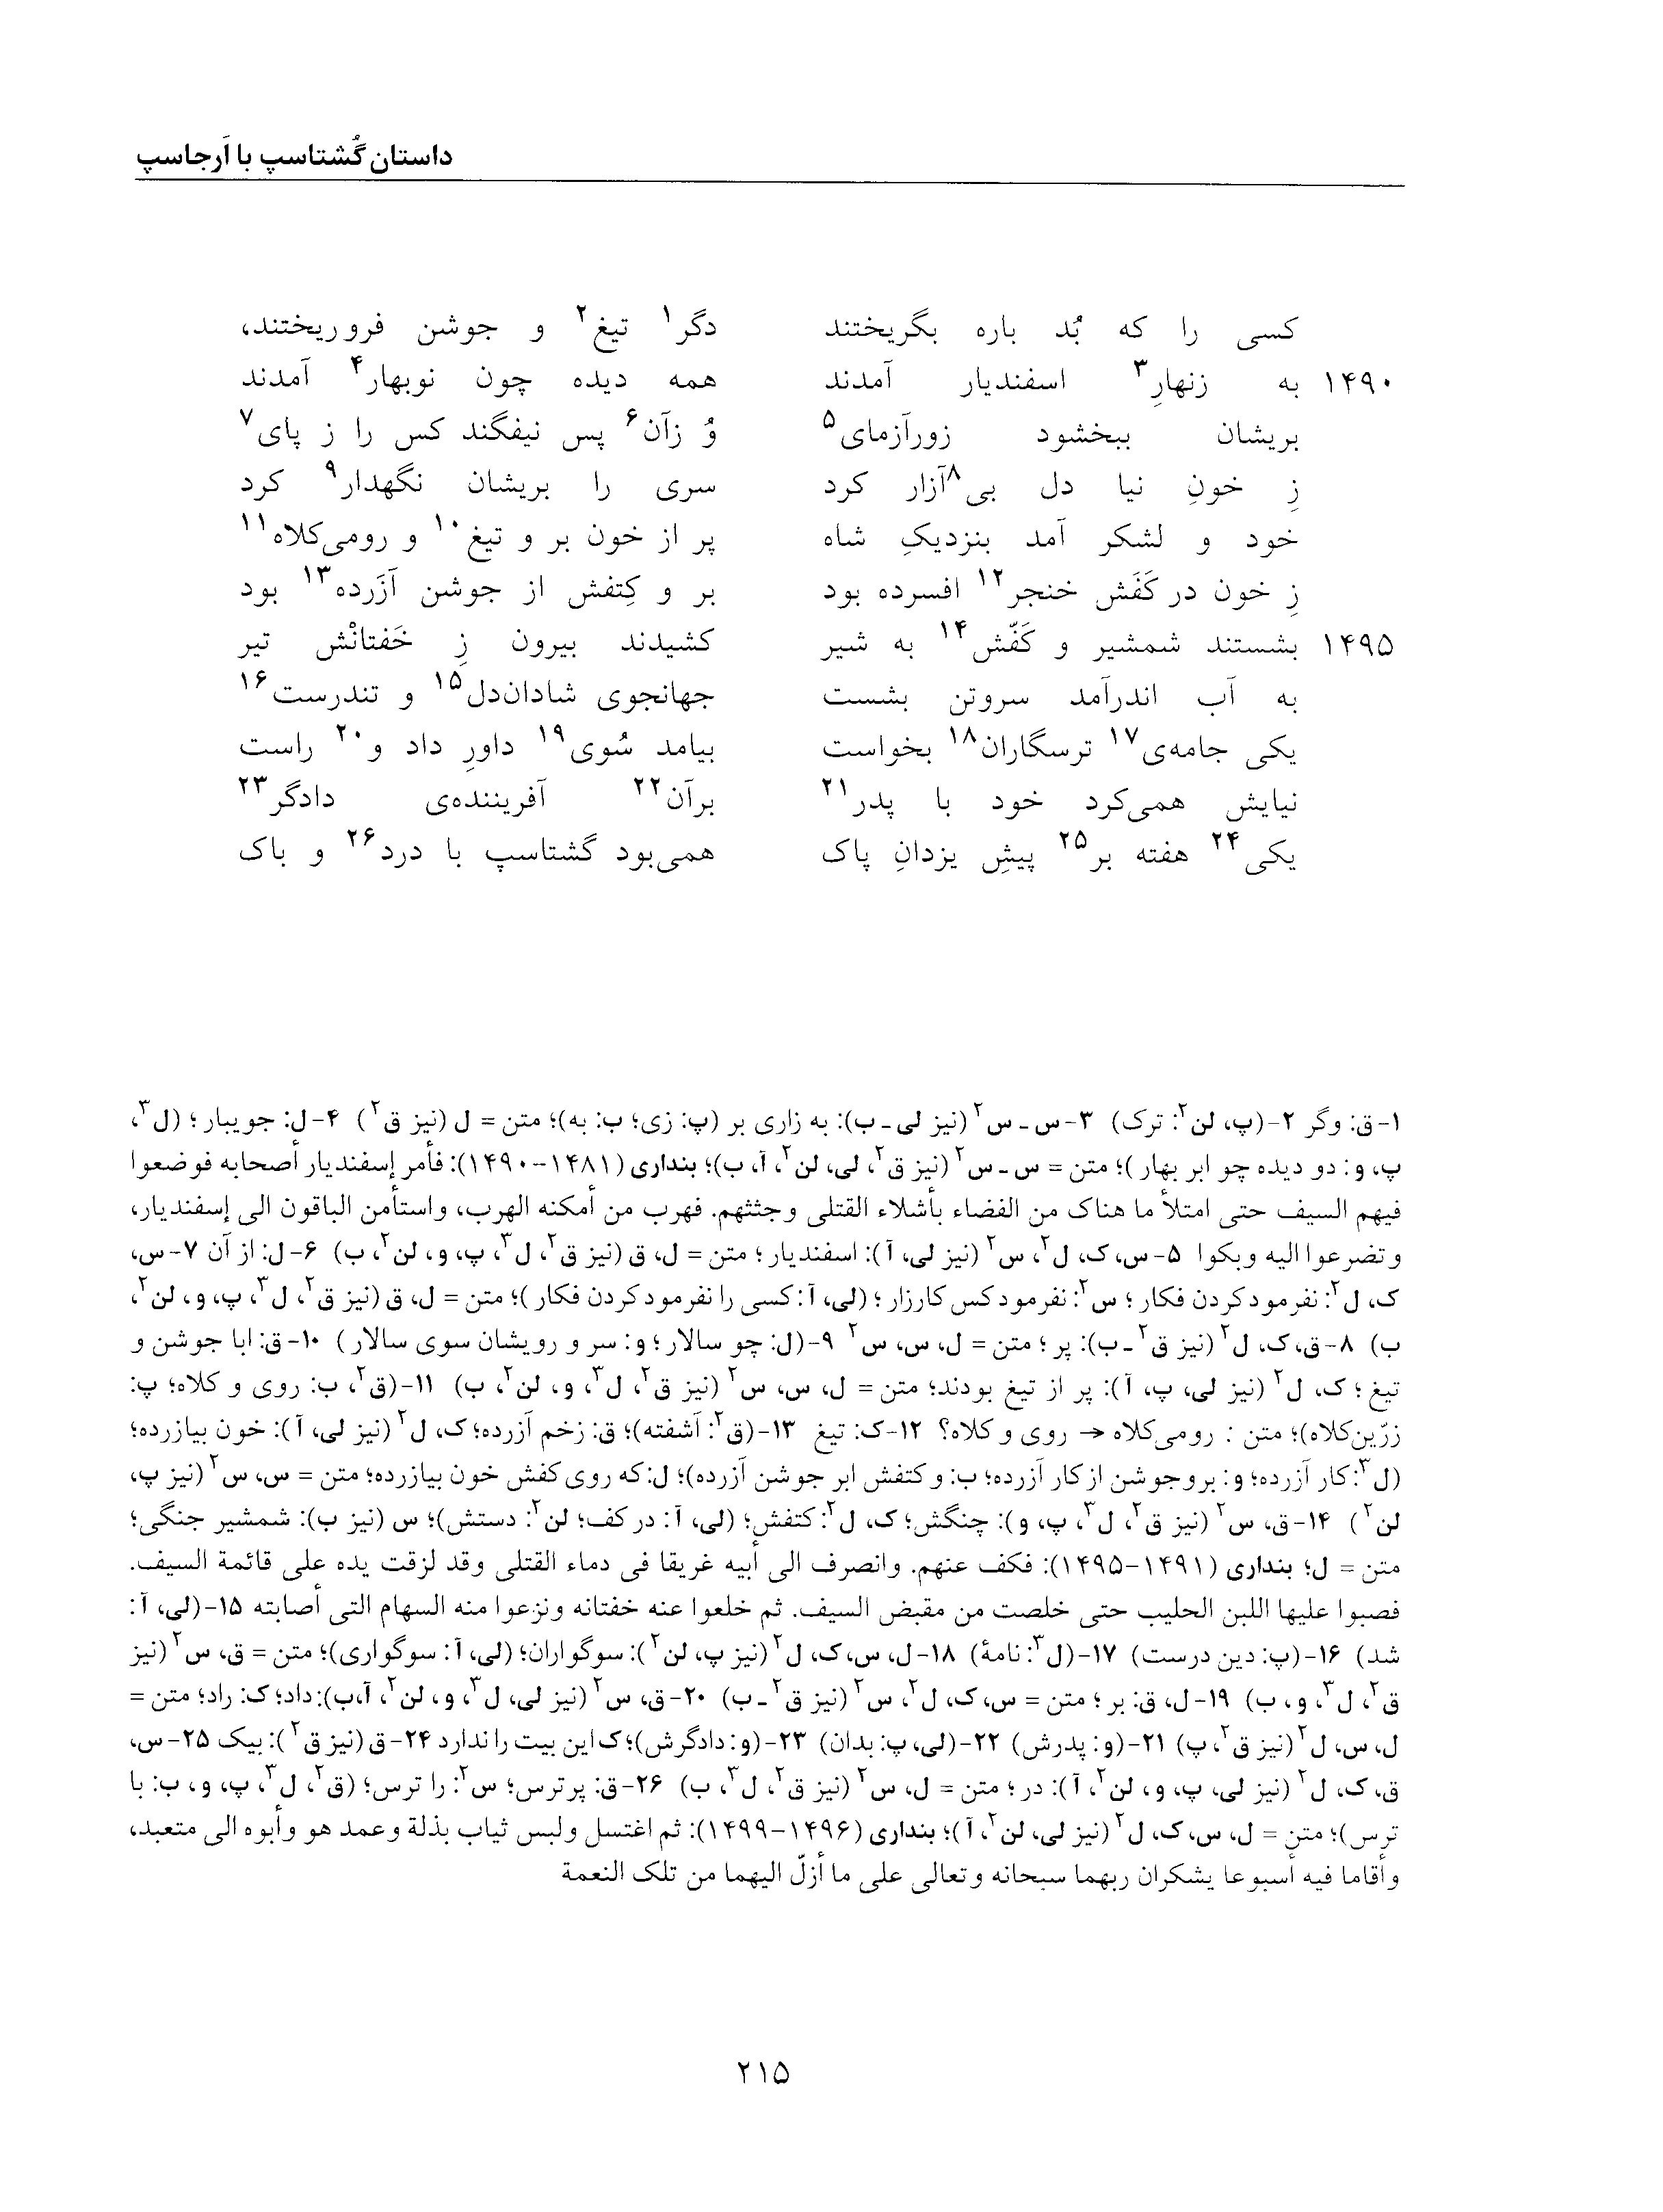 داستان گُشتاسپ با اَرجاسپ
کسی را که بُد باره بگریختند دگر۱ تیغ۲ و جوشن فروریختند،
۱۴۹۰ به زنهارِ۳ اسفندیار آمدند همه دیده چون نوبهار۴ آمدند
بریشان ببخشود زورآزمای۵ وُ زآن۶ پس نیفگند کس را ز پای۷
زِ خونِ نیا دل بی۸آزار کرد سری را بریشان نگهدار۹ کرد
خود و لشکر آمد بنزدیکِ شاه پر از خون بر و تیغ۱۰ و رومی‌کلاه۱۱
زِ خون در کَفَش خنجر۱۲ افسرده بود بر و کِتفش از جوشن آزَرده۱۳ بود
۱۴۹۵ بشستند شمشیر و کَفّش۱۴ به شیر کشیدند بیرون زِ خَفتانْش تیر
به آب اندرآمد سروتن بشست جهانجوی شادان‌دل۱۵ و تندرست۱۶
یکی جامه‌ی۱۷ ترسگاران۱۸ بخواست بیامد سُوی۱۹ داورِ داد و۲۰ راست
نیایش همی‌کرد خود با پدر۲۱ برآن۲۲ آفریننده‌ی دادگر۲۳
یکی۲۴ هفته بر۲۵ پیشِ یزدانِ پاک همی‌بود گشتاسپ با درد۲۶ و باک
۱-ق: وگر ۲-(پ، لن۲: ترک) ۳-س ـ س۲ (نیز لی ـ ب): به زاری بر (پ: زی؛ ب: به)؛ متن = ل (نیز ق۲) ۴-ل: جویبار؛ (ل۳،
پ، و: دو دیده چو ابر بهار)؛ متن = س ـ س۲ (نیز ق۲، لی، لن۲، آ، ب)؛ بنداری (۱۴۸۱-۱۴۹۰): فأمر إسفندیار أصحابه فوضعوا
فیهم السیف حتی امتلأ ما هناک من الفضاء بأشلاء القتلی وجثثهم. فهرب من أمکنه الهرب، واستأمن الباقون الی إسفندیار،
وتضرعوا الیه وبکوا ۵-س، ک، ل۲، س۲ (نیز لی، آ): اسفندیار؛ متن = ل، ق (نیز ق۲، ل۳، پ، و، لن۲، ب) ۶-ل: از آن ۷-س،
ک، ل۲: نفرمود کردن فکار؛ س۲: نفرمود کس کارزار؛ (لی، آ: کسی را نفرمود کردن فکار)؛ متن = ل، ق (نیز ق۲، ل۳، پ، و، لن۲،
ب) ۸-ق، ک، ل۲ (نیز ق۲ ـ ب): پر؛ متن = ل، س، س۲ ۹-(ل: چو سالار؛ و: سر و رویشان سوی سالار) ۱۰-ق: ابا جوشن و
تیغ؛ ک، ل۲ (نیز لی، پ، آ): پر از تیغ بودند؛ متن = ل، س، س۲ (نیز ق۲، ل۳، و، لن۲، ب) ۱۱-(ق۲، ب: روی و کلاه؛ پ:
زرّین‌کلاه)؛ متن : رومی‌کلاه → روی و کلاه؟ ۱۲-ک: تیغ ۱۳-(ق۲: آشفته)؛ ق: زخم آزرده؛ ک، ل۲ (نیز لی، آ): خون بیازرده؛
(ل۳: کار آزرده؛ و: بروجوشن از کار آزرده؛ ب: و کتفش ابر جوشن آزرده)؛ ل: که روی کفش خون بیازرده؛ متن = س، س۲ (نیز پ،
لن۲) ۱۴-ق، س۲ (نیز ق۲، ل۳، پ، و): چنگش؛ ک، ل۲: کتفش؛ (لی، آ: در کف؛ لن۲: دستش)؛ س (نیز ب): شمشیر جنگی؛
متن = ل؛ بنداری (۱۴۹۱-۱۴۹۵): فکف عنهم. وانصرف الی أبیه غریقا فی دماء القتلی وقد لزقت یده علی قائمة السیف.
فصبوا علیها اللبن الحلیب حتی خلصت من مقبض السیف. ثم خلعوا عنه خفتانه ونزعوا منه السهام التی أصابته ۱۵-(لی، آ:
شد) ۱۶-(پ: دین درست) ۱۷-(ل۳: نامهٔ) ۱۸-ل، س، ک، ل۲ (نیز پ، لن۲): سوگواران؛ (لی، آ: سوگواری)؛ متن = ق، س۲ (نیز
ق۲، ل۳، و، ب) ۱۹-ل، ق: بر؛ متن = س، ک، ل۲، س۲ (نیز ق۲ ـ ب) ۲۰-ق، س۲ (نیز لی، ل۳، و، لن۲، آ، ب): داد؛ ک: راد؛ متن =
ل، س، ل۲ (نیز ق۲، پ) ۲۱-(و: پدرش) ۲۲-(لی، پ: بدان) ۲۳-(و: دادگرش)؛ ک این بیت را ندارد ۲۴-ق (نیز ق۲): بیک ۲۵-س،
ق، ک، ل۲ (نیز لی، پ، و، لن۲، آ): در؛ متن = ل، س۲ (نیز ق۲، ل۳، ب) ۲۶-ق: پرترس؛ س۲: را ترس؛ (ق۲، ل۳، پ، و، ب: با
ترس)؛ متن = ل، س، ک، ل۲ (نیز لی، لن۲، آ)؛ بنداری (۱۴۹۶-۱۴۹۹): ثم اغتسل ولبس ثیاب بذلة وعمد هو وأبوه الی متعبد،
وأقاما فیه أسبوعا یشکران ربهما سبحانه وتعالی علی ما أزلّ الیهما من تلک النعمة
۲۱۵